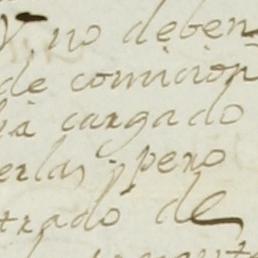 V. no deben
de comicion
lia cargado
erlas; pero
trado de